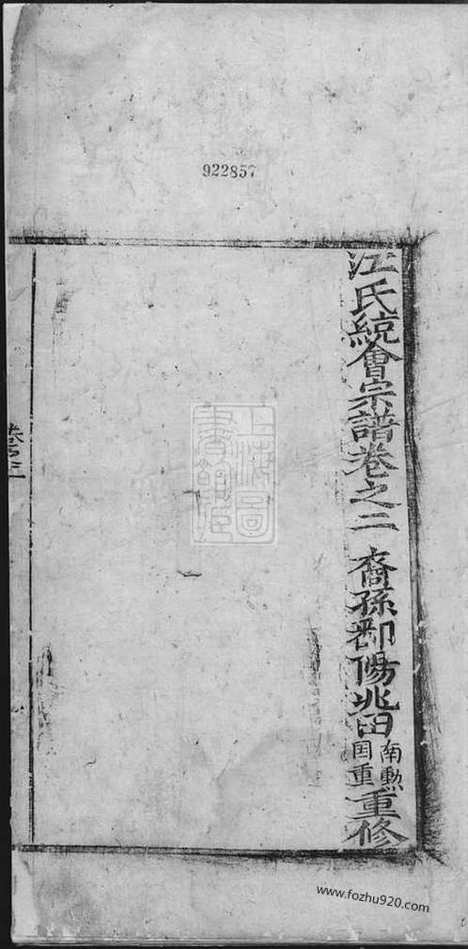 922857
江氏統會宗譜卷之二 裔孫鄱陽兆田南勲国重重修
上海圖書館藏
卷之二
www.fozhu920.com